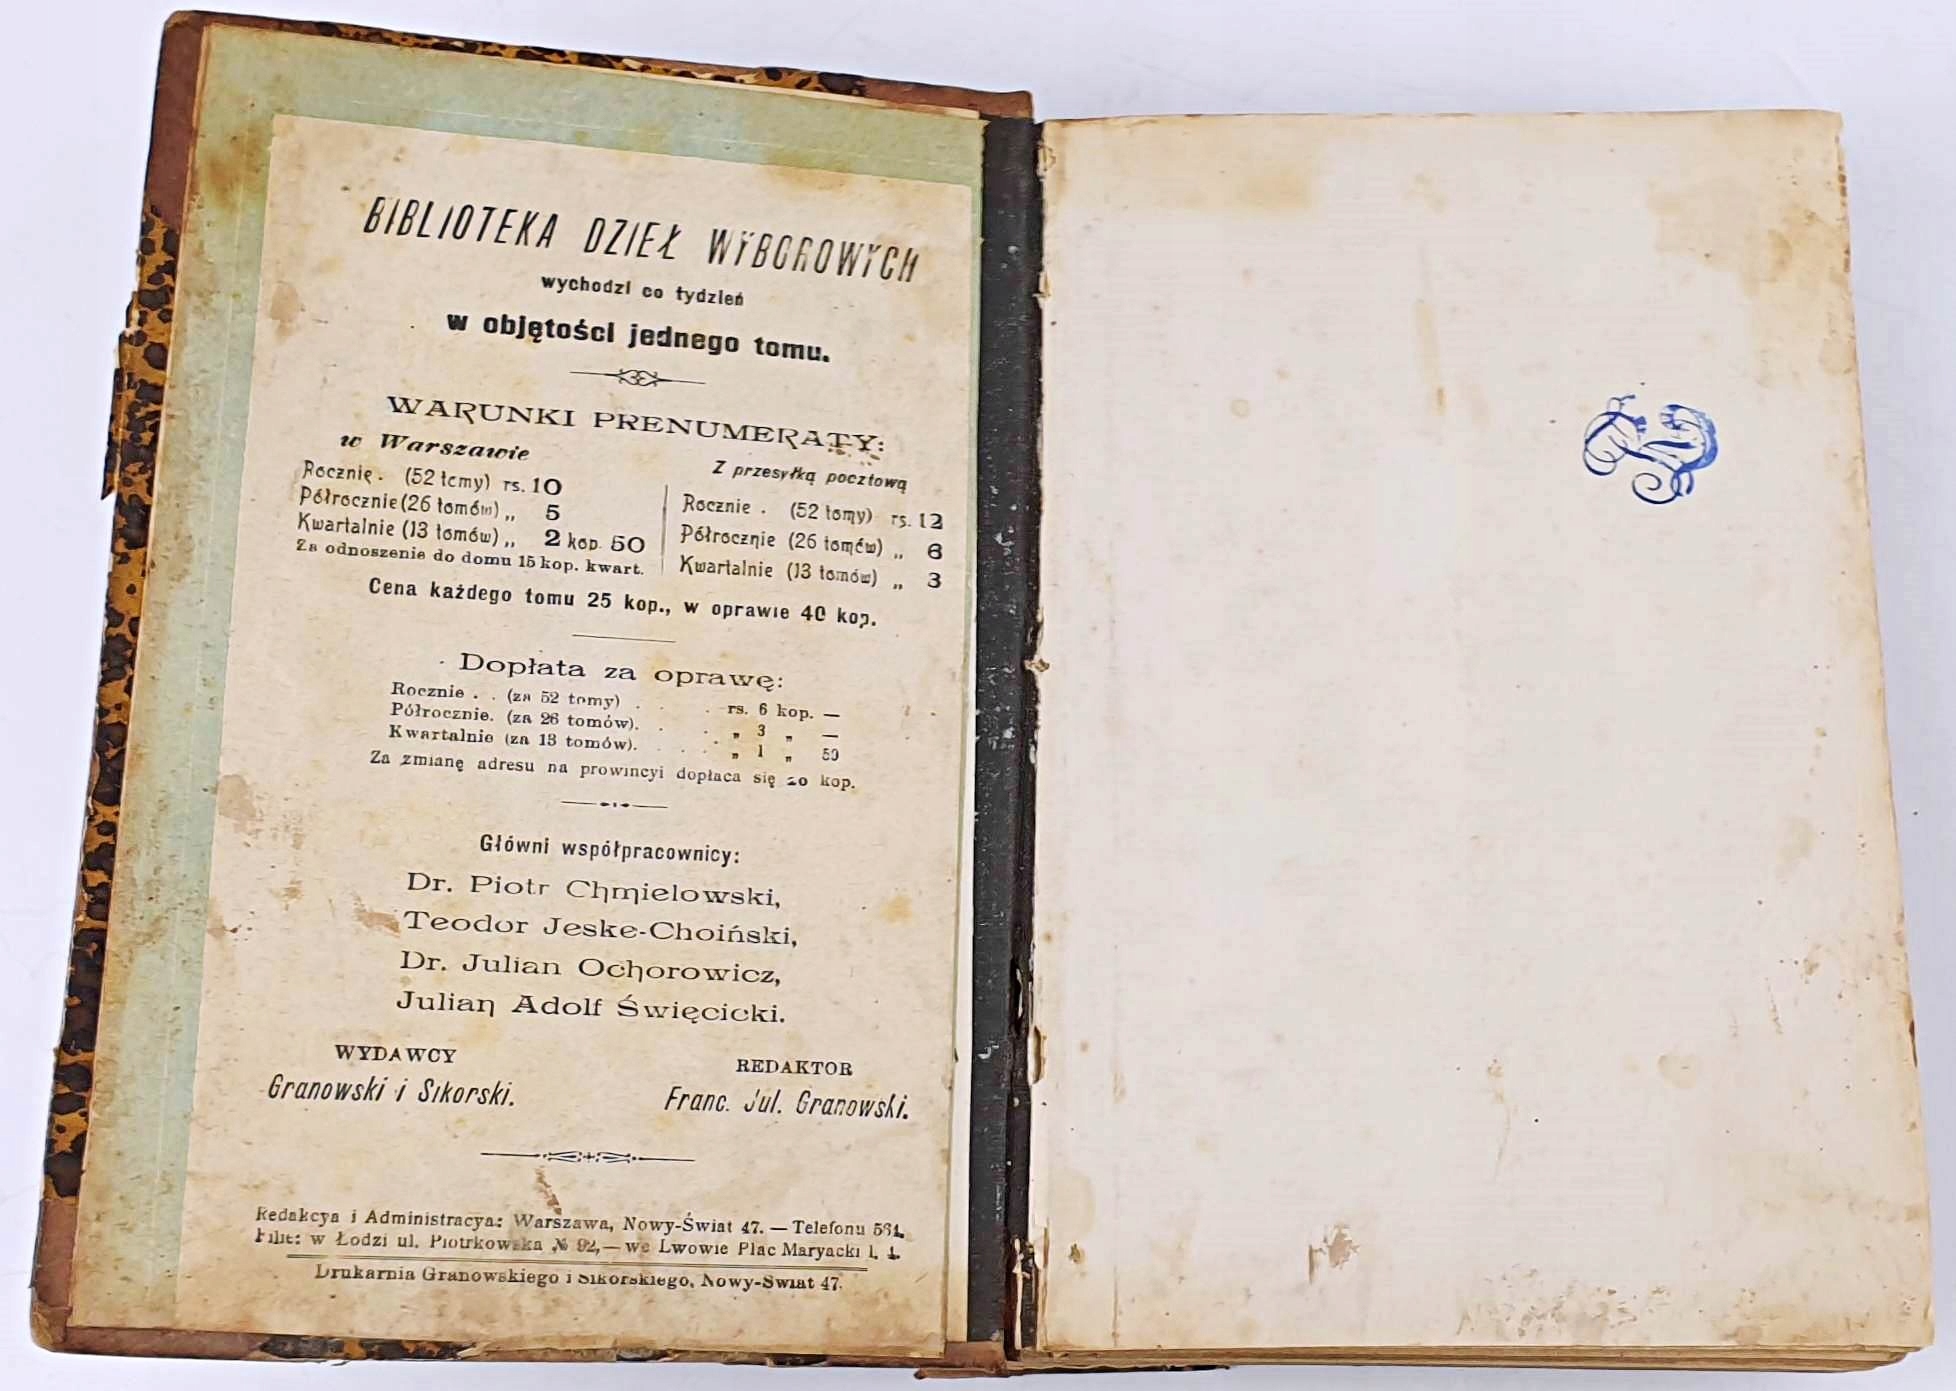 BIBLIOTEKA DZIEŁ WYBOROWYCH
wychodzi co tydzień
w objętości jednego tomu.
WARUNKI PRENUMERATY:
w Warszawie
Rocznie . (52 tomy) rs. 10
Półrocznie (26 tomów) „ 5
Kwartalnie (13 tomów) „ 2 kop. 50
Za odnoszenie do domu 15 kop. kwart.
Z przesyłką pocztową
Rocznie . (52 tomy) rs. 12
Półrocznie (26 tomów) „ 6
Kwartalnie (13 tomów) „ 3
Cena każdego tomu 25 kop., w oprawie 40 kop.
Dopłata za oprawę:
Rocznie . . (za 52 tomy) . . . rs. 6 kop. —
Półrocznie. (za 26 tomów). . . „ 3 „ —
Kwartalnie (za 13 tomów). . . . „ 1 „ 50
Za zmianę adresu na prowincyi dopłaca się 20 kop.
Główni współpracownicy:
Dr. Piotr Chmielowski,
Teodor Jeske-Choiński,
Dr. Julian Ochorowicz,
Julian Adolf Święcicki.
WYDAWCY
Granowski i Sikorski.
REDAKTOR
Franc. Jul. Granowski.
Redakcya i Administracya: Warszawa, Nowy-Świat 47. — Telefonu
Filie: w Łodzi ul. Piotrkowska № 92, — we Lwowie Plac Maryacki l. 4.
Drukarnia Granowskiego i Sikorskiego, Nowy-Świat 47.